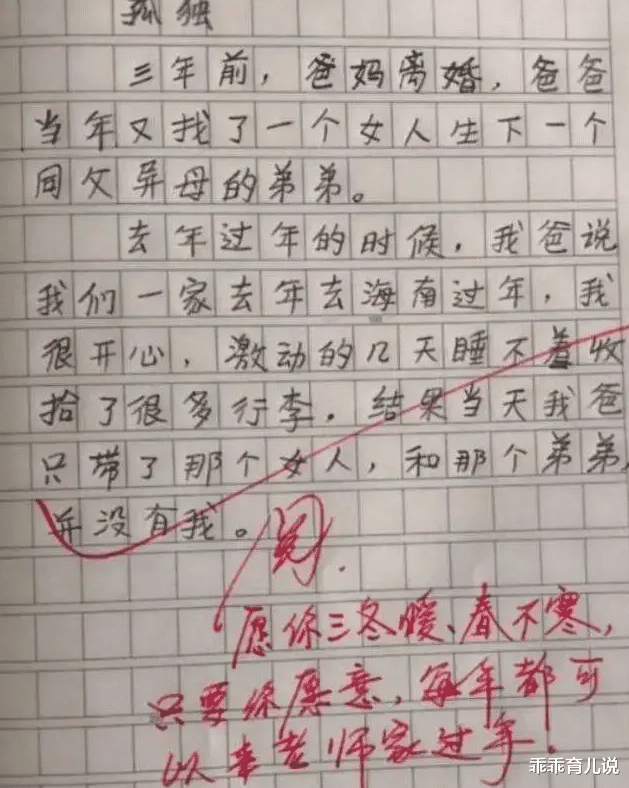 孤独
三年前，爸妈离婚，爸爸
当年又找了一个女人生下一个
同父异母的弟弟。
去年过年的时候，我爸说
我们一家去年去海南过年，我
很开心，激动的几天睡不着收
拾了很多行李，结果当天我爸
只带了那个女人，和那个弟弟，
并没有我。
阅.
愿你三冬暖、春不寒，
只要你愿意，每年都可
以来老师家过年！
乖乖育儿说